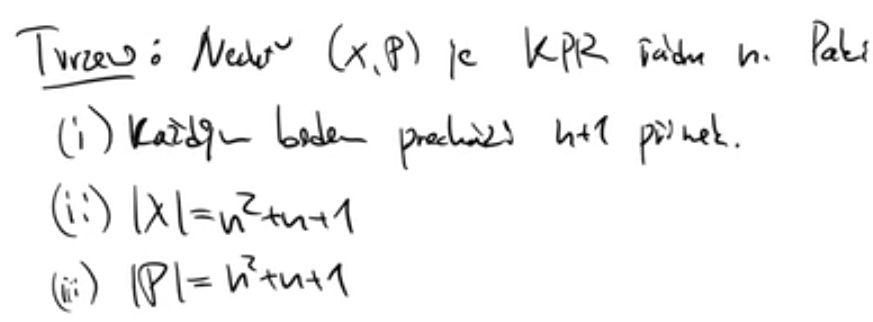 Tvrzení: Nechť (X, P) je KPR řádu n. Pak:
(i) Každým bodem prochází n+1 přímek.
(ii) |X|=n²+n+1
(iii) |P|=n²+n+1